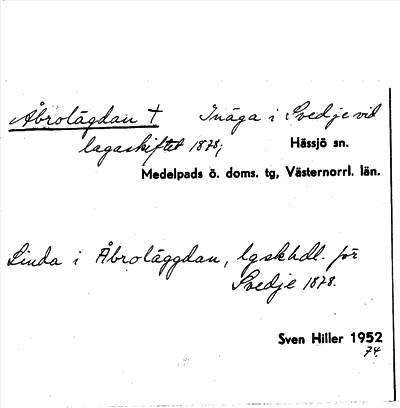 Åbrolägdan † Inäga i Svedje vid
lagaskiftet 1878;
Hässjö sn.
Medelpads ö. doms. tg, Västernorrl. län.
Linda i Åbroläggdan, lgskhdl. för
Svedje 1878.
Sven Hiller 1952
74